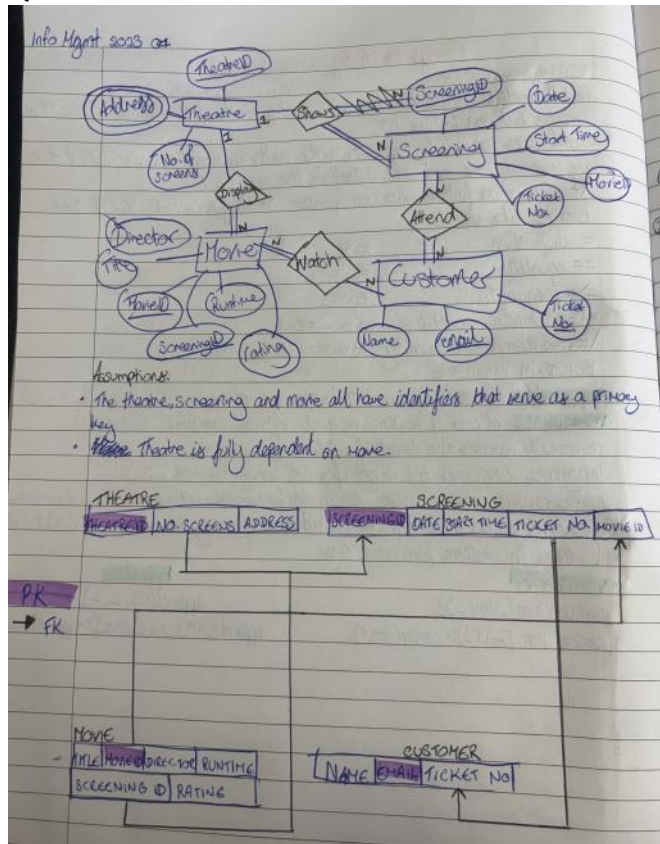 Info Mgmt 2023 Q1
TheatreID
Address
Theatre
1
Shows
ScreeningID
Date
No. of
screens
1
N
Screening
Start Time
MovieID
Display
N
Ticket
No.
Attend
N
N
Director
Title
Movie
N
Watch
N
Customer
MovieID
Runtime
ScreeningID
rating
Name
email
Ticket
No.
Assumptions:
• The theatre, screening and movie all have identifiers that serve as a primary
key
• Theatre is fully dependent on Movie.
THEATRE
THEATREID NO. SCREENS ADDRESS
SCREENING
SCREENINGID DATE START TIME TICKET NO. MOVIE ID
PK
→ FK
MOVIE
TITLE MOVIEID DIRECTOR RUNTIME
SCREENING ID RATING
CUSTOMER
NAME EMAIL TICKET NO